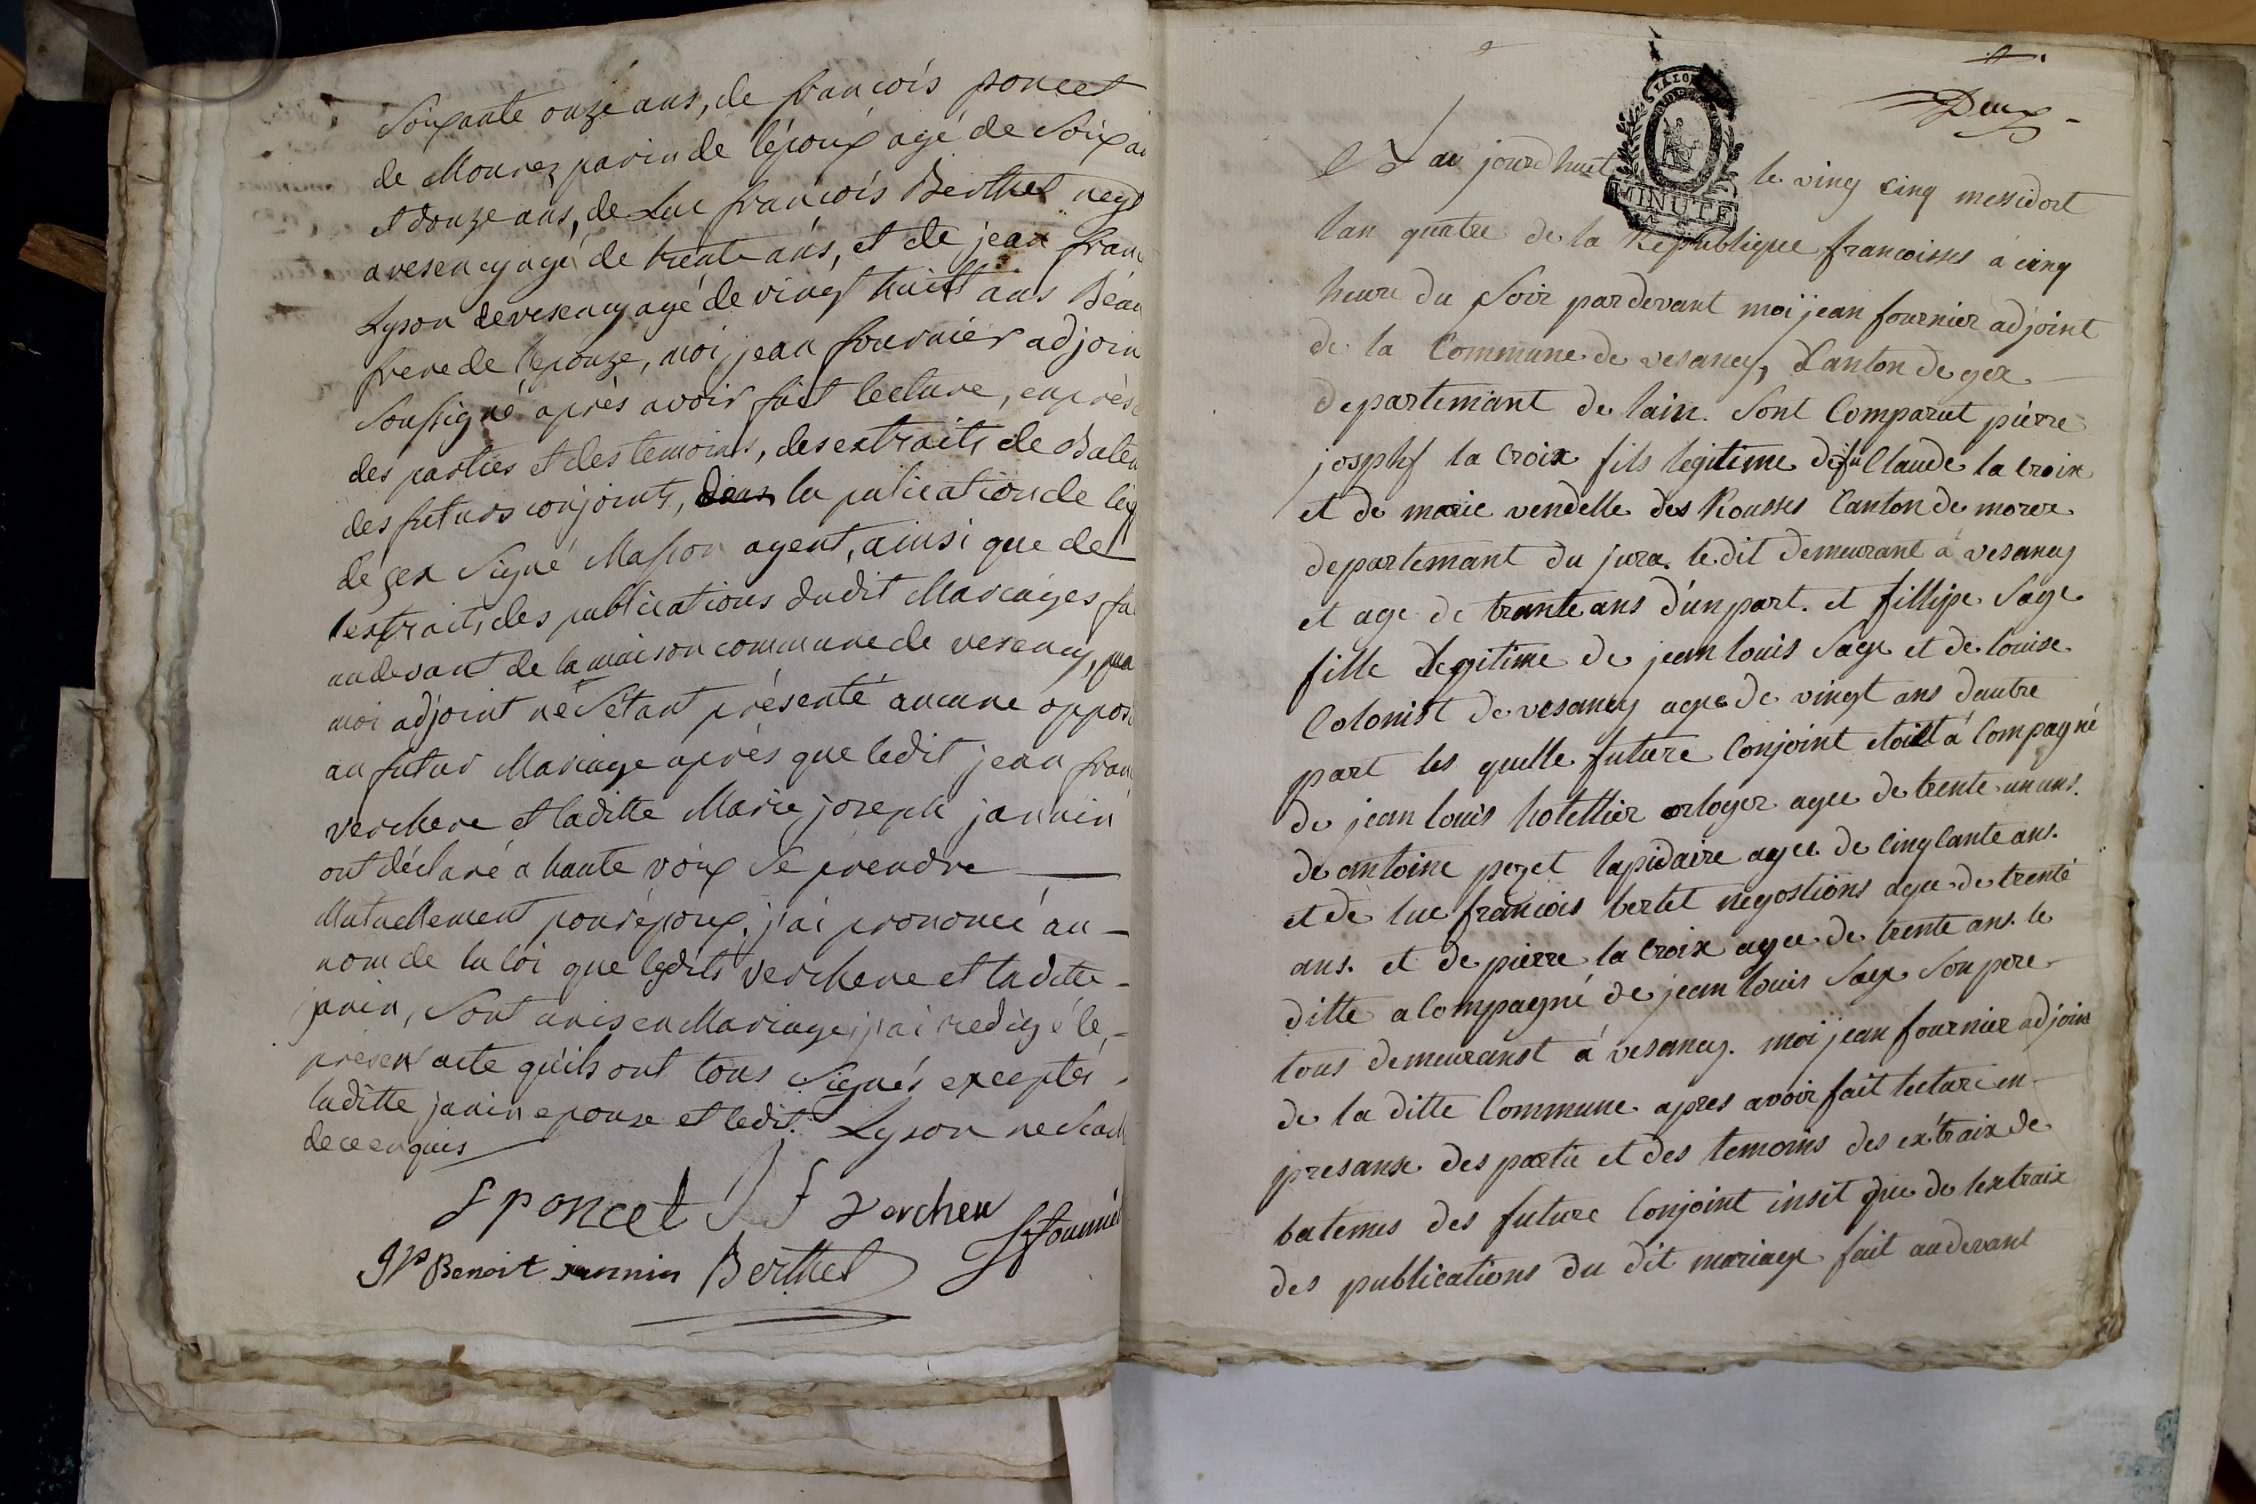 Soixante onze ans, de françois poncet
de Mourez parin de l'époux agé de Soix
et douze ans, de Luc françois Berthet nego
a vesency agé de trente ans, et de jean fran
Lyson de vesency agé de vingt huitt ans Beau
frere de l'epouze, moi jean fournier adjoin
Soussigné après avoir fait lecture, en prés
des parties et des temoins, des extraits de Batem
des futurs conjoints, la publication de
de gex Signé Masson agent, ainsi que de
l'extrait, des publications dudit Mariages fa
au devant de la maison commune de vesency, 
moi adjoint ne S'etant présenté aucune oppos
au futur Mariage après que ledit jean fran
verchere et laditte Marie joseph jannin
ont déclaré a haute voix Se prendre
Mutuellement pour époux, j'ai prononcé au
nom de la loi que lesdits verchere et laditte
janin, Sont unis en Mariage, j'ai redigé le
present acte qu'ils ont tous Signés exceptés
laditte janin epouse et ledit Lyson ne Scach
de ce enquis
f poncet J f verchere
Benoit jannin Berthet J fournier
MINUTE
Deux
au jourdhuit le ving cinq messidort
lan quatre de la Republique francoisses a cinq
heure du Soir pardevant moi jean fournier adjoint
de la Commune de vesancy, Canton de gex
departemant de lain. Sont Comparut pierre
josphf la Croix fils legitime de fu Claude la Croix
et de marie vendelle des Rousses Canton de morez
departemant du jura. le dit demeurant a vesancy
et age de trante ans d'un part. et fillipe Sage
fille legitime de jean louis Sage et de louise
Colonist de vesancy agee de vingt ans dautre
part les quelle future Conjoint etoit a Compagné
de jean louis hotellier orloger agee de trente un ans.
de antoine pezet lapidaire agee de Cinqcante ans.
et de luc francois bertet negostions agee de trente
ans. et de pierre la Croix agee de trente ans. le
ditte a Compagné de jean louis Sage Son pere
tous demeuranst á vesancy. moi jean fournier adjoint
de la ditte Commune apres avoir fait lecture en
presanse des partie et des temoins des extraix de
batemes des future Conjoint insit que de lextraix
des publications du dit mariage fait audevant